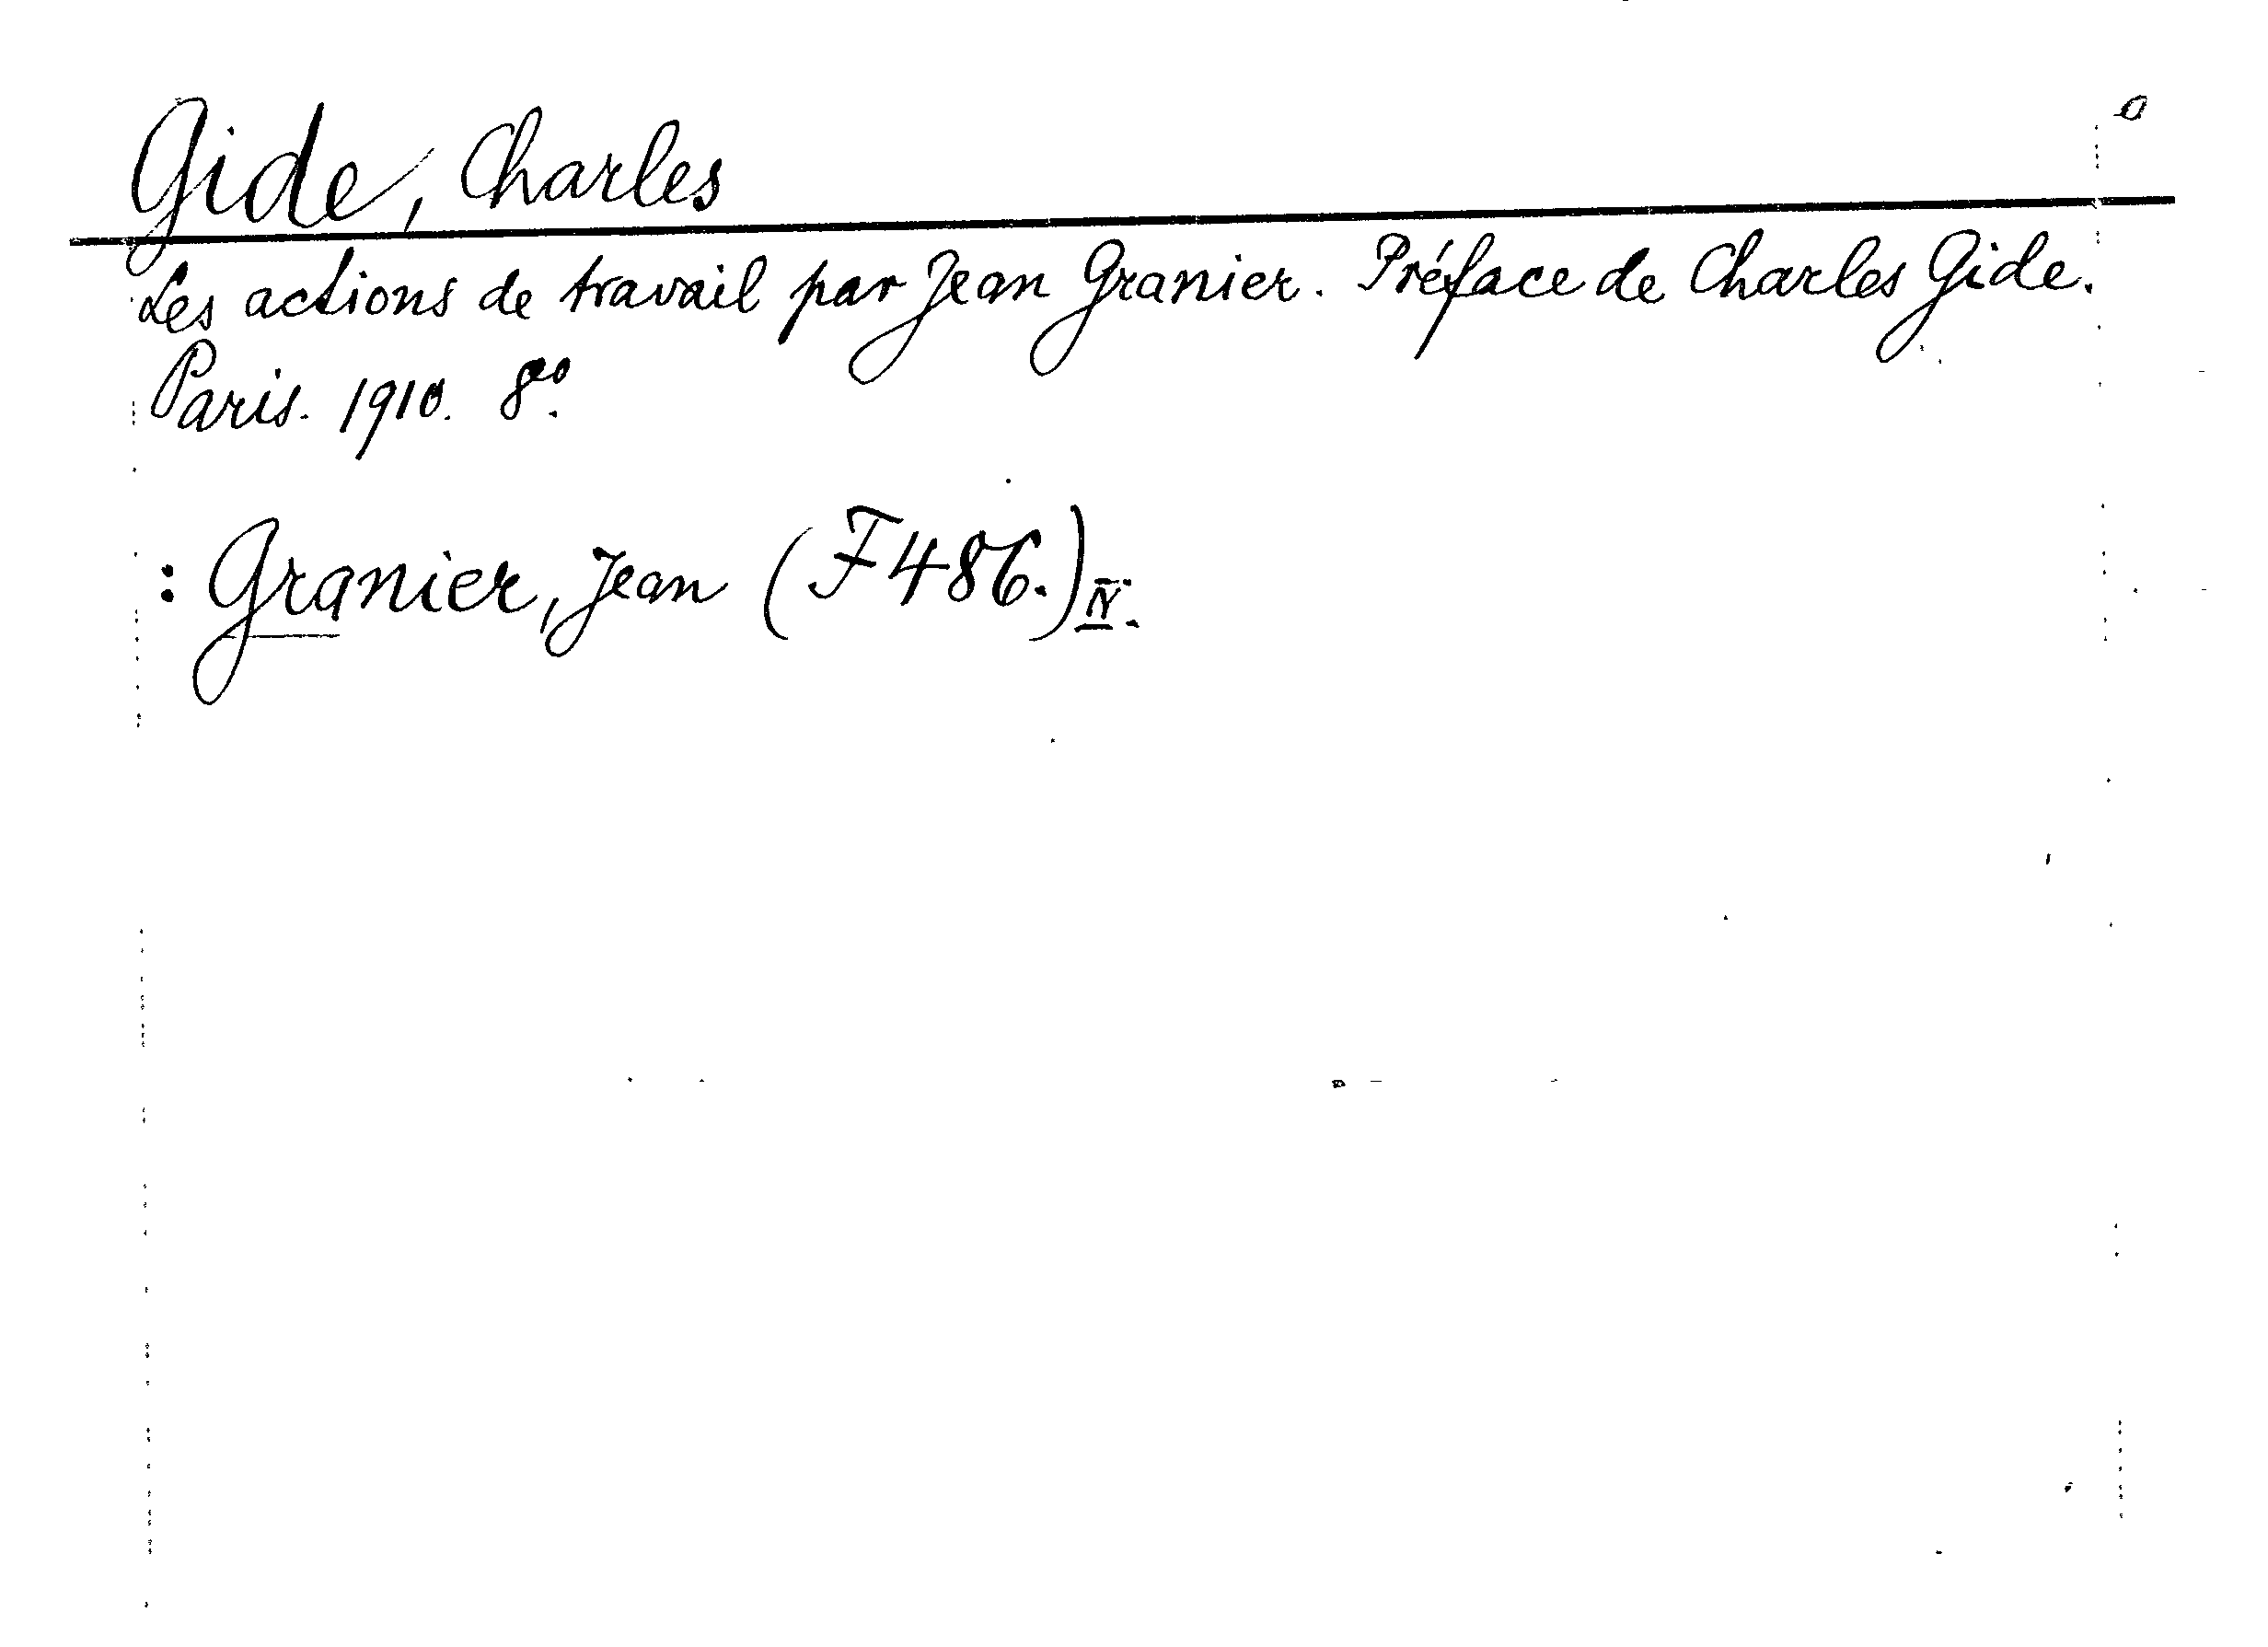 Gide, Charles
Les actions de travail par Jean Granier. Préface de Charles Gide.
Paris. 1910. 8°.
: Granier, Jean (F 486.) IV.